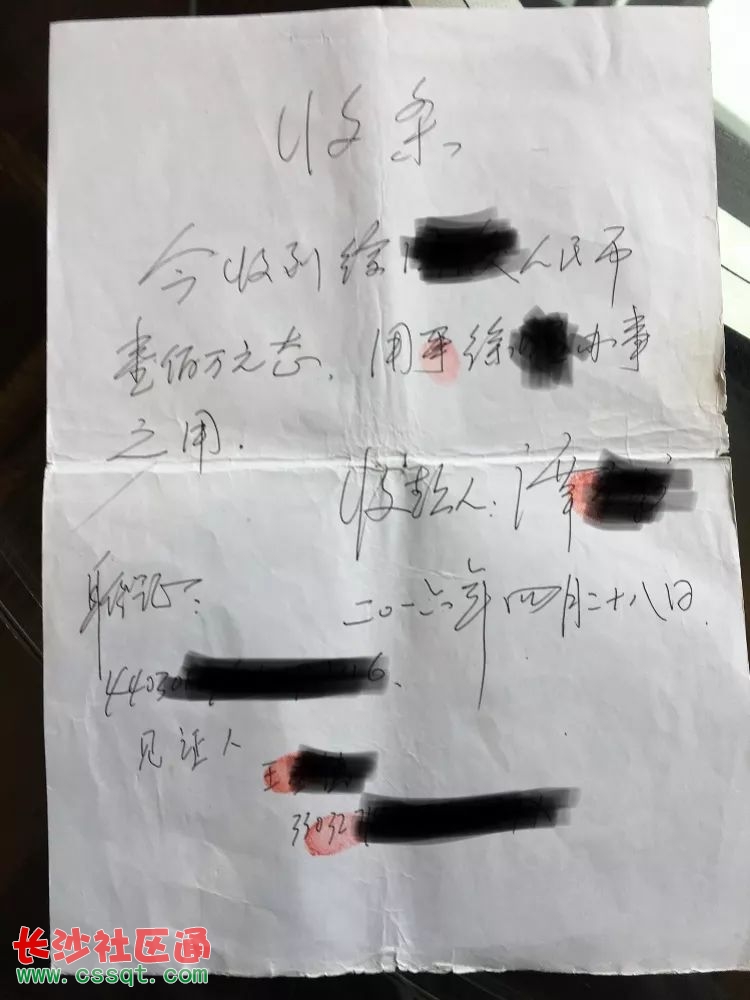 收条
今收到徐人民币
壹佰万元态. 用于徐办事
之用.
收款人: 谭
二〇一六年四月二十八日.
身份证:
44030 6.
见证人
王
330327
长沙社区通
www.cssqt.com